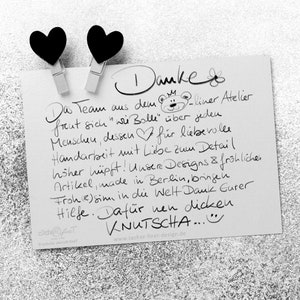 Danke
Das Team aus dem -liner Atelier
freut sich "wie Bolle" über jeden
Menschen, dessen ♡ für liebevolle
Handarbeit mit Liebe zum Detail
höher hüpft! Unsere Designs & fröhlichen
Artikel, made in Berlin, bringen
Froh(sinn in die Welt Dank Eurer
Hilfe. Dafür nen dicken
KNUTSCHA...